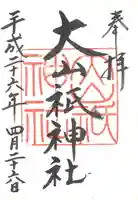 奉拝
大山祇神社
平成二十六年四月二十六日